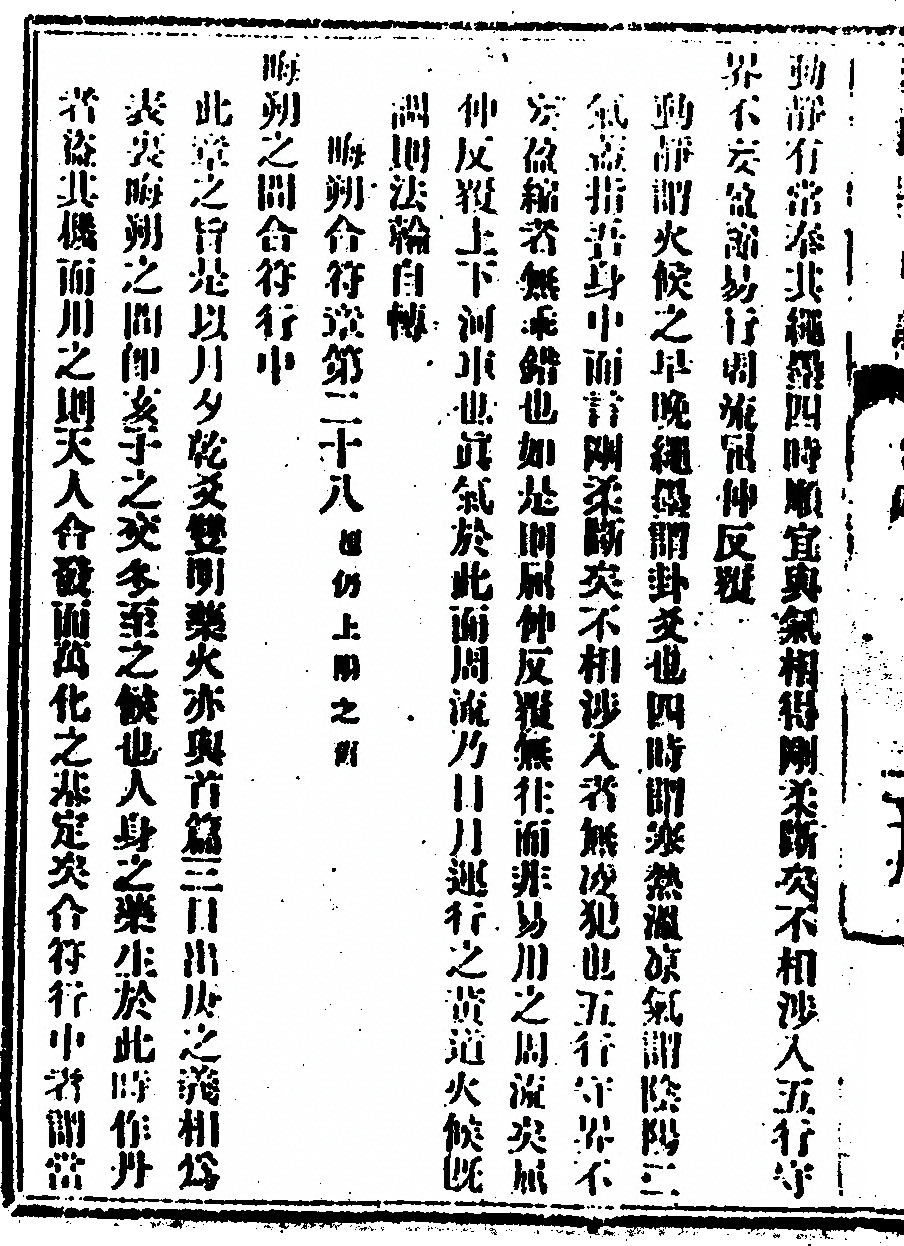 動靜有常奉其繩墨四時順宜與氣相得剛柔斷矣不相涉入五行守
界不妄盈縮易行周流屈伸反覆
動靜謂火候之早晚繩墨謂卦爻也四時謂寒熱溫涼氣謂陰陽二
氣蓋指吾身中而言剛柔斷矣不相涉入者無凌犯也五行守界不
妄盈縮者無乖錯也如是則屈伸反覆無往而非易用之周流矣屈
伸反覆上下河車也眞氣於此而周流乃日月運行之黃道火候旣
調則法輪自轉
晦朔合符章第二十八 仍上陽之舊
晦朔之間合符行中
此章之旨是以月夕乾爻雙明藥火亦與首篇三日出庚之義相爲
表裏晦朔之間卽亥子之交冬至之候也人身之藥生於此時作丹
者盜其機而用之則天人合發而萬化之基定矣合符行中者謂當